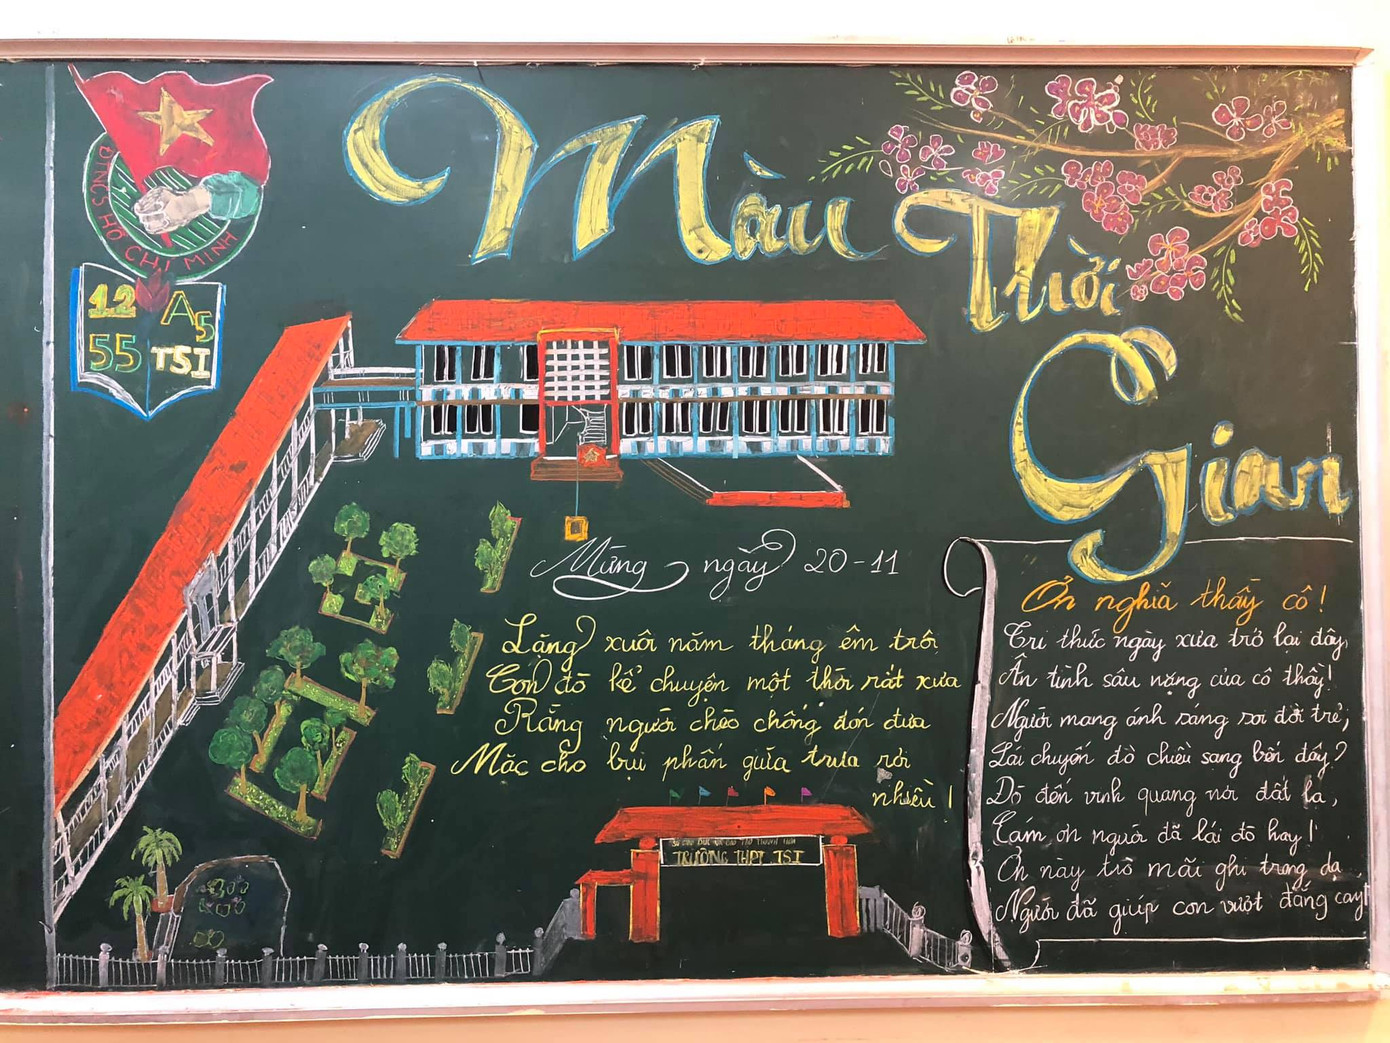 Màu Thời
Gian
ĐTNCS HỒ CHÍ MINH
12 A5
55 TSI
Mừng ngày 20-11
Lặng xuôi năm tháng êm trôi
Con đò kể chuyện một thời rất xưa
Rằng người chèo chống đón đưa
Mặc cho bụi phấn giữa trưa rơi
nhiều!
TRƯỜNG THPT TSI
Ơn nghĩa thầy cô!
Tri thức ngày xưa trở lại đây,
Ân tình sâu nặng của cô thầy!
Người mang ánh sáng soi đời trẻ;
Lái chuyến đò chiều sang bến đầy?
Đò đến vinh quang nơi đất lạ,
Cám ơn người đã lái đò hay!
Ơn này trò mãi ghi trong dạ
Người đã giúp con vượt đắng cay!